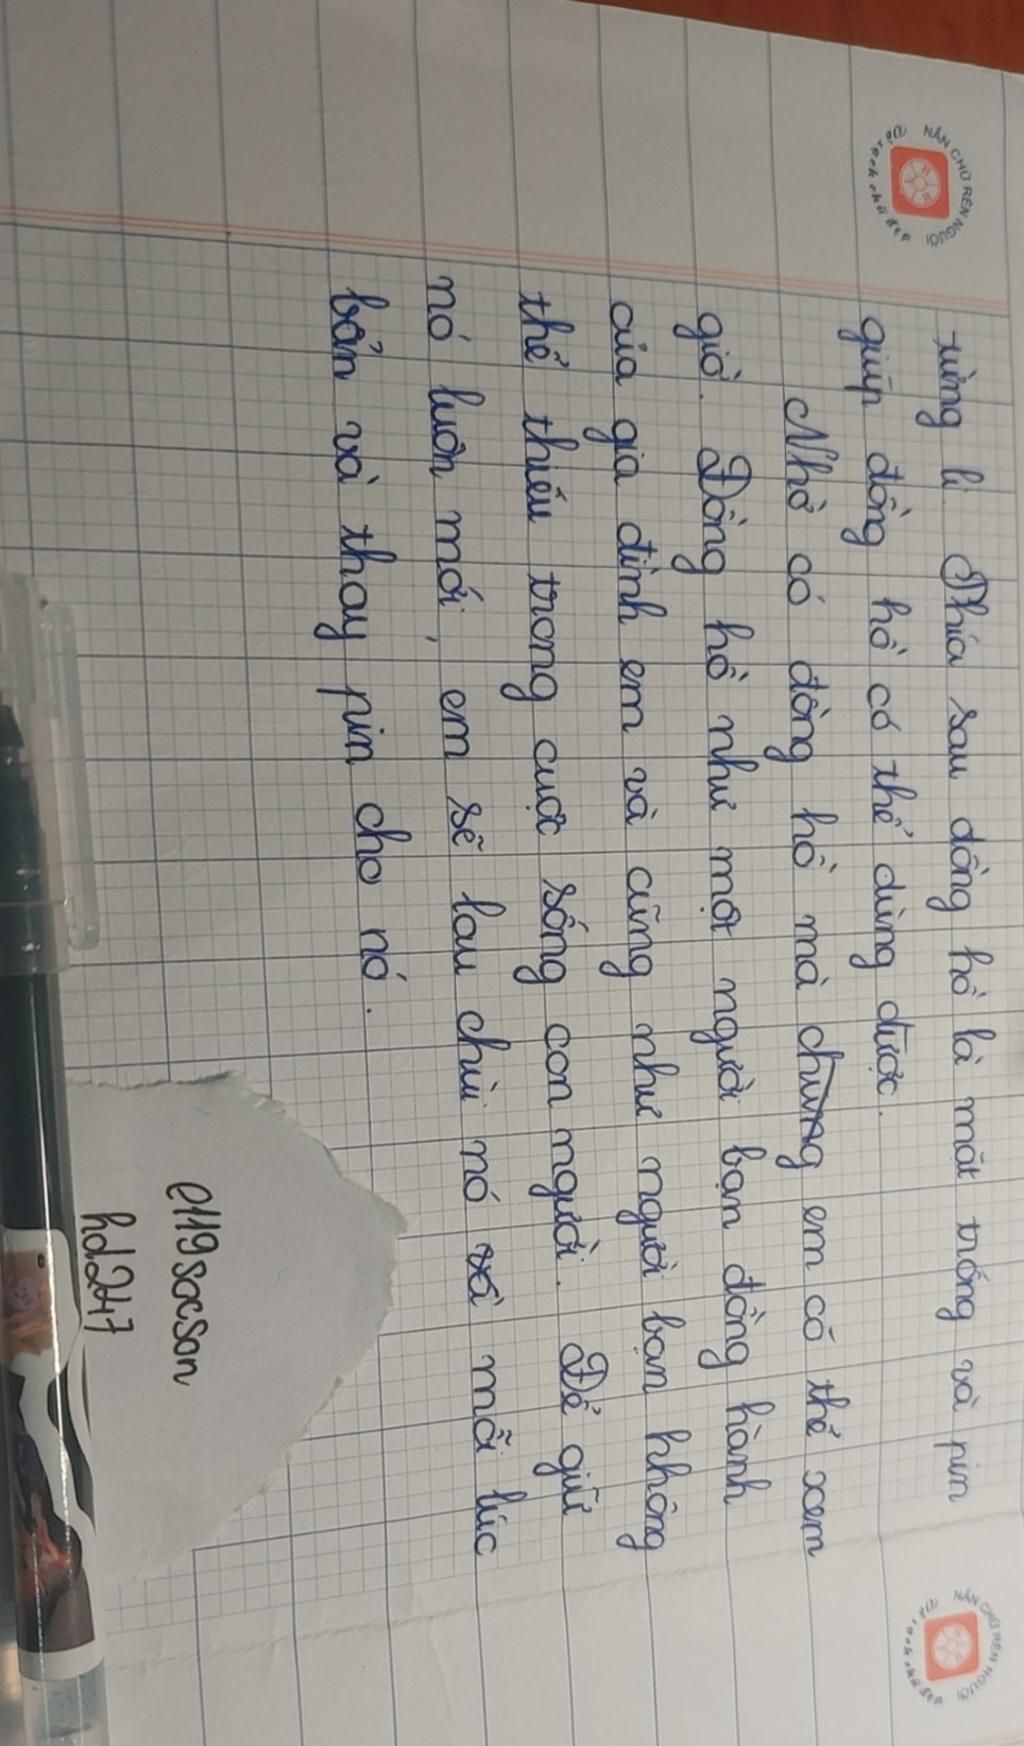 NẮN CHỮ RÈN NGƯỜI
NẮN CHỮ RÈN NGƯỜI
từng li. Phía sau đồng hồ là mặt trống và pin
giúp đồng hồ có thể dùng được.
Nhờ có đồng hồ mà chúng em có thể xem
giờ. Đồng hồ như một người bạn đồng hành
của gia đình em và cũng như người bạn không
thể thiếu trong cuộc sống con người. Để giữ
nó luôn mới, em sẽ lau chùi nó mỗi lúc
bẩn và thay pin cho nó.
e119socson
hd247